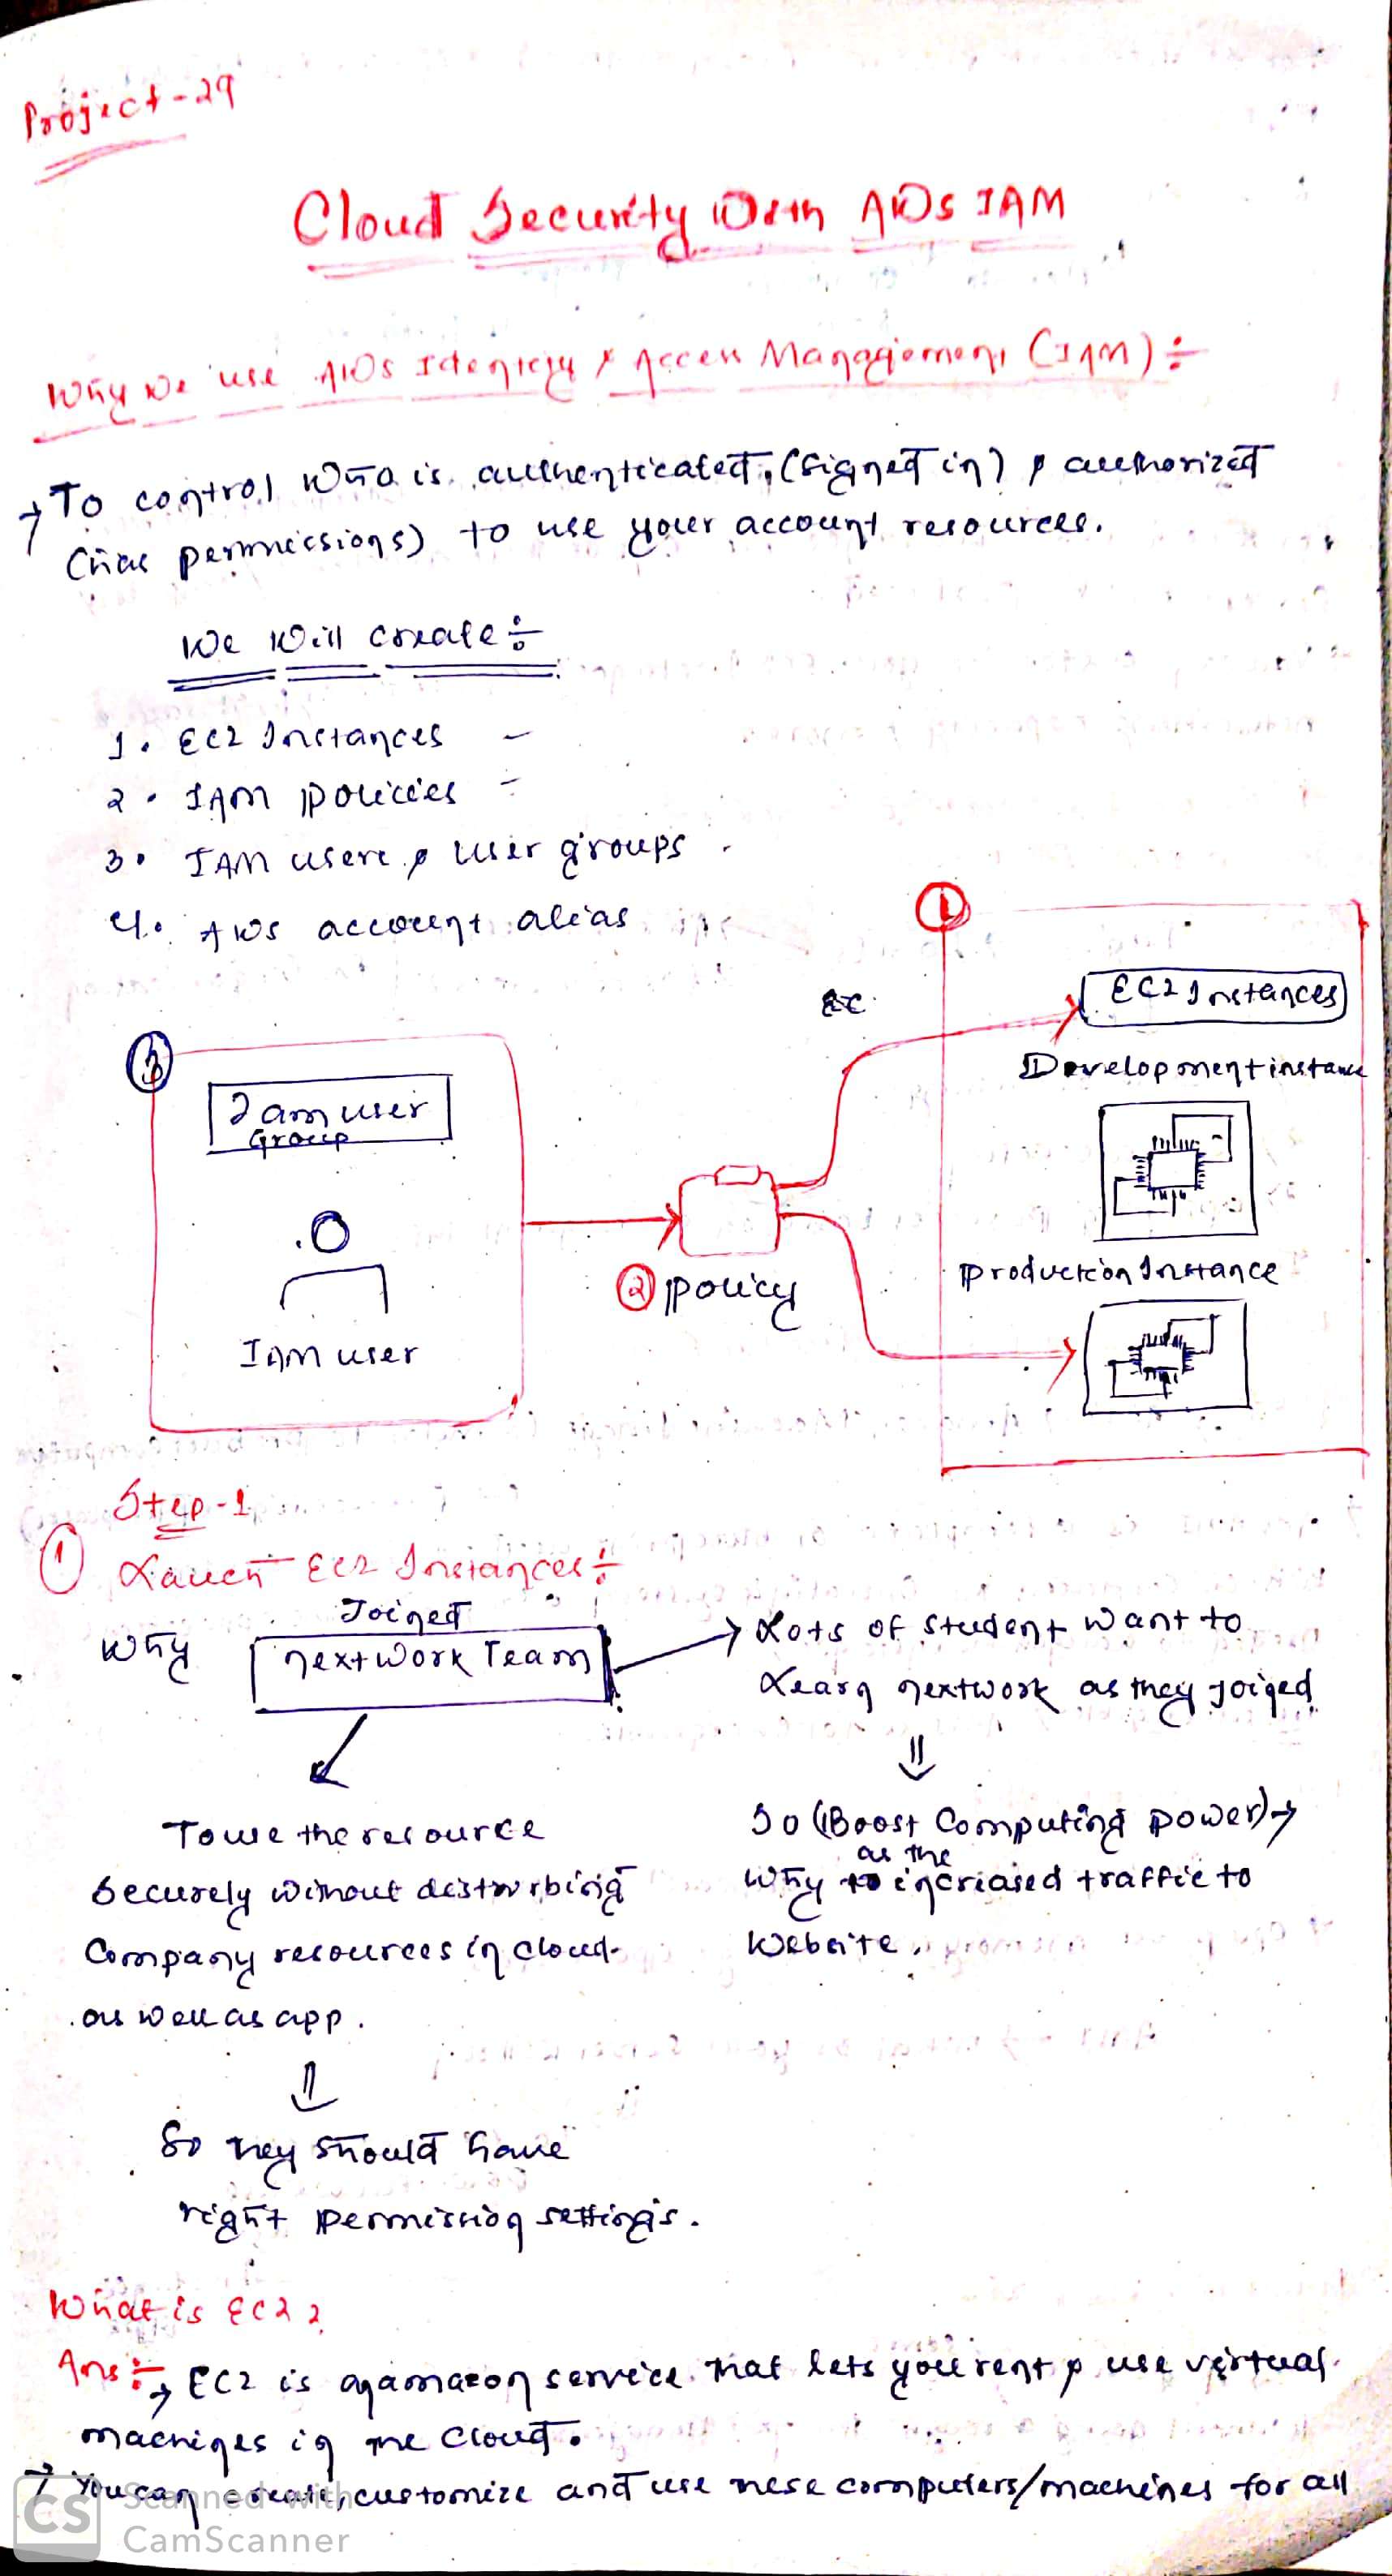 Project-29
Cloud Security With AWS IAM
Why we use AWS Identity & Access Management (IAM) ÷
→ To control who is authenticated, (signed in) & authorized
(has permmissions) to use your account resources.
We Will Create ÷
1. EC2 Instances -
2. IAM policies -
3. IAM users & user groups
4. AWS account alias
1
EC2 Instances
Development instance
Production Instance
3
Iam user
Group
IAM user
② Policy
Step-1
① Lauch EC2 Instances ÷
Why
Joined
nextwork Team
→ Lots of student want to
Learn nextwork as they joined
⇓
So (Boost Computing Power) →
as the
Why to incriased traffic to
Website.
To use the resource
Securely without distrurbing
Company resources in cloud
as well as app.
⇓
So they should have
right permission settings.
What is EC2?
Ans ÷ → EC2 is anamazon service that lets you rent & use virtual
machines in the Cloud.
→ You can create, customize and use these computers/machines for all
CS Scanned with
CamScanner